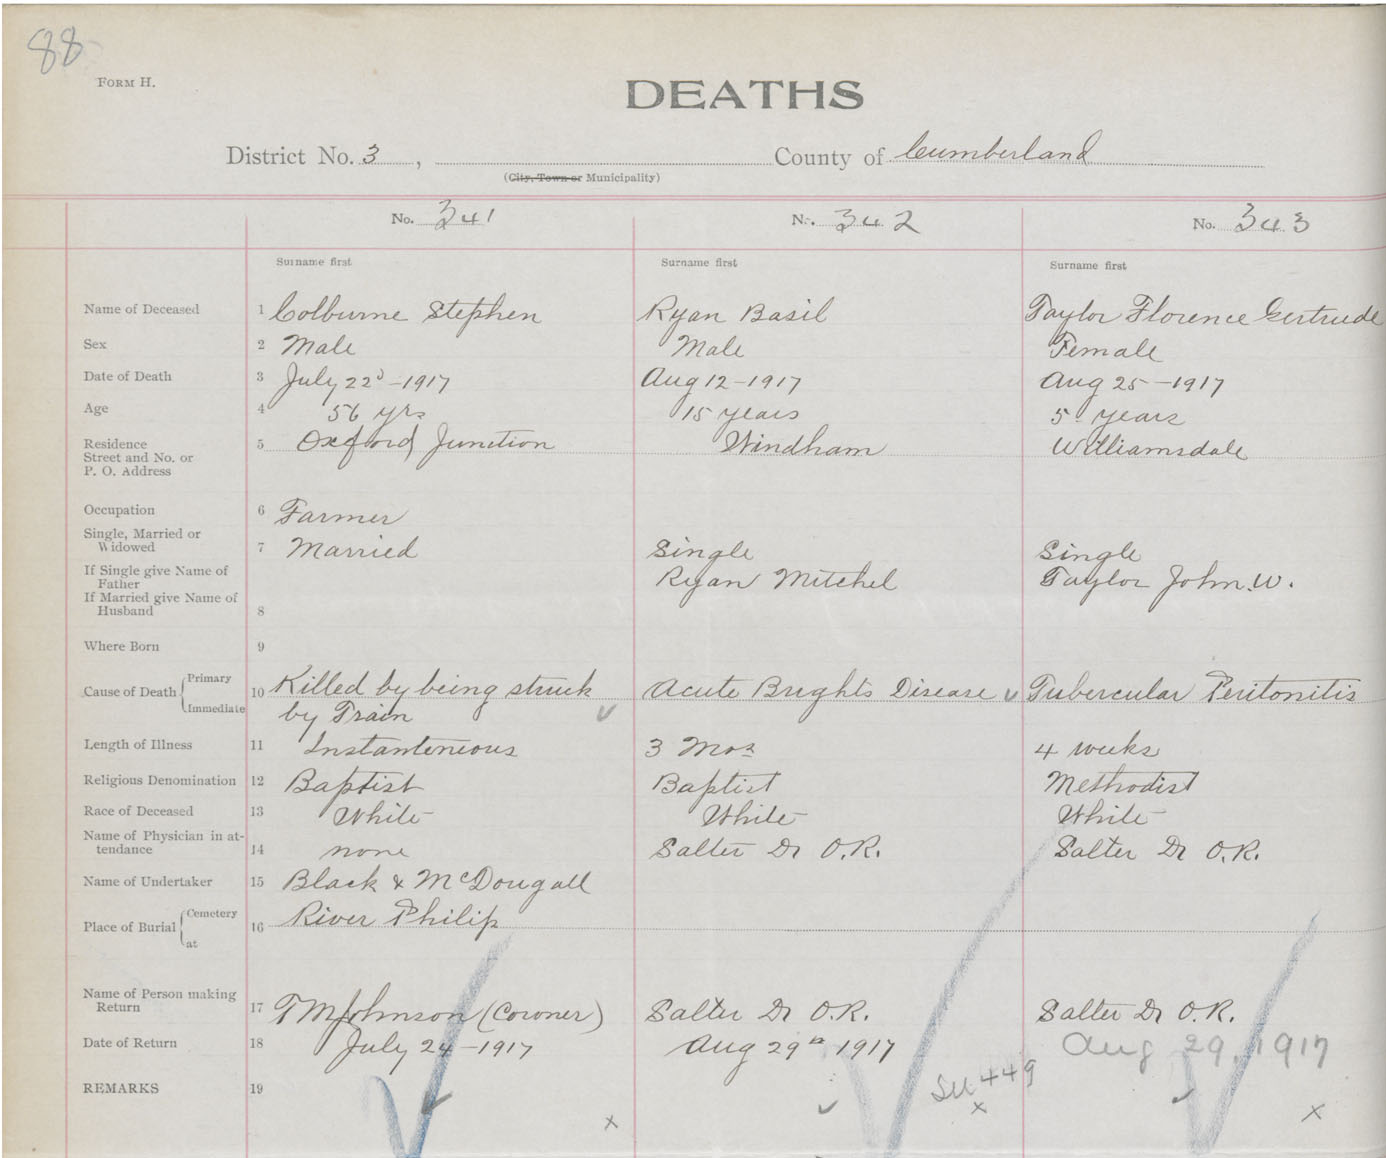 88
FORM H.
DEATHS
District No. 3, County of Cumberland
(City, Town or Municipality)
No. 341 No. 342 No. 343
Surname first Surname first Surname first
Name of Deceased 1 Colburne Stephen Ryan Basil Taylor Florence Gertrude
Sex 2 Male Male Female
Date of Death 3 July 22d - 1917 Aug 12 - 1917 Aug 25 - 1917
Age 4 56 yrs 15 years 5 years
Residence
Street and No. or 5 Oxford Junction Windham Williamsdale
P. O. Address
Occupation 6 Farmer
Single, Married or
Widowed 7 Married Single Single
If Single give Name of
Father Ryan Mitchel Taylor John. W.
If Married give Name of
Husband 8
Where Born 9
Cause of Death { Primary 10 Killed by being struck Acute Brights Disease Tubercular Peritonitis
Immediate by Train
Length of Illness 11 Instanteneous 3 Mos 4 weeks
Religious Denomination 12 Baptist Baptist Methodist
Race of Deceased 13 White White White
Name of Physician in at-
tendance 14 none Salter Dr O.R. Salter Dr O.R.
Name of Undertaker 15 Black & McDougall
Place of Burial { Cemetery 16 River Philip
at
Name of Person making
Return 17 T M Johnson (Coroner) Salter Dr O.R. Salter Dr O.R.
Date of Return 18 July 24 - 1917 Aug 29th 1917 Aug 29, 1917
REMARKS 19 449
x x x